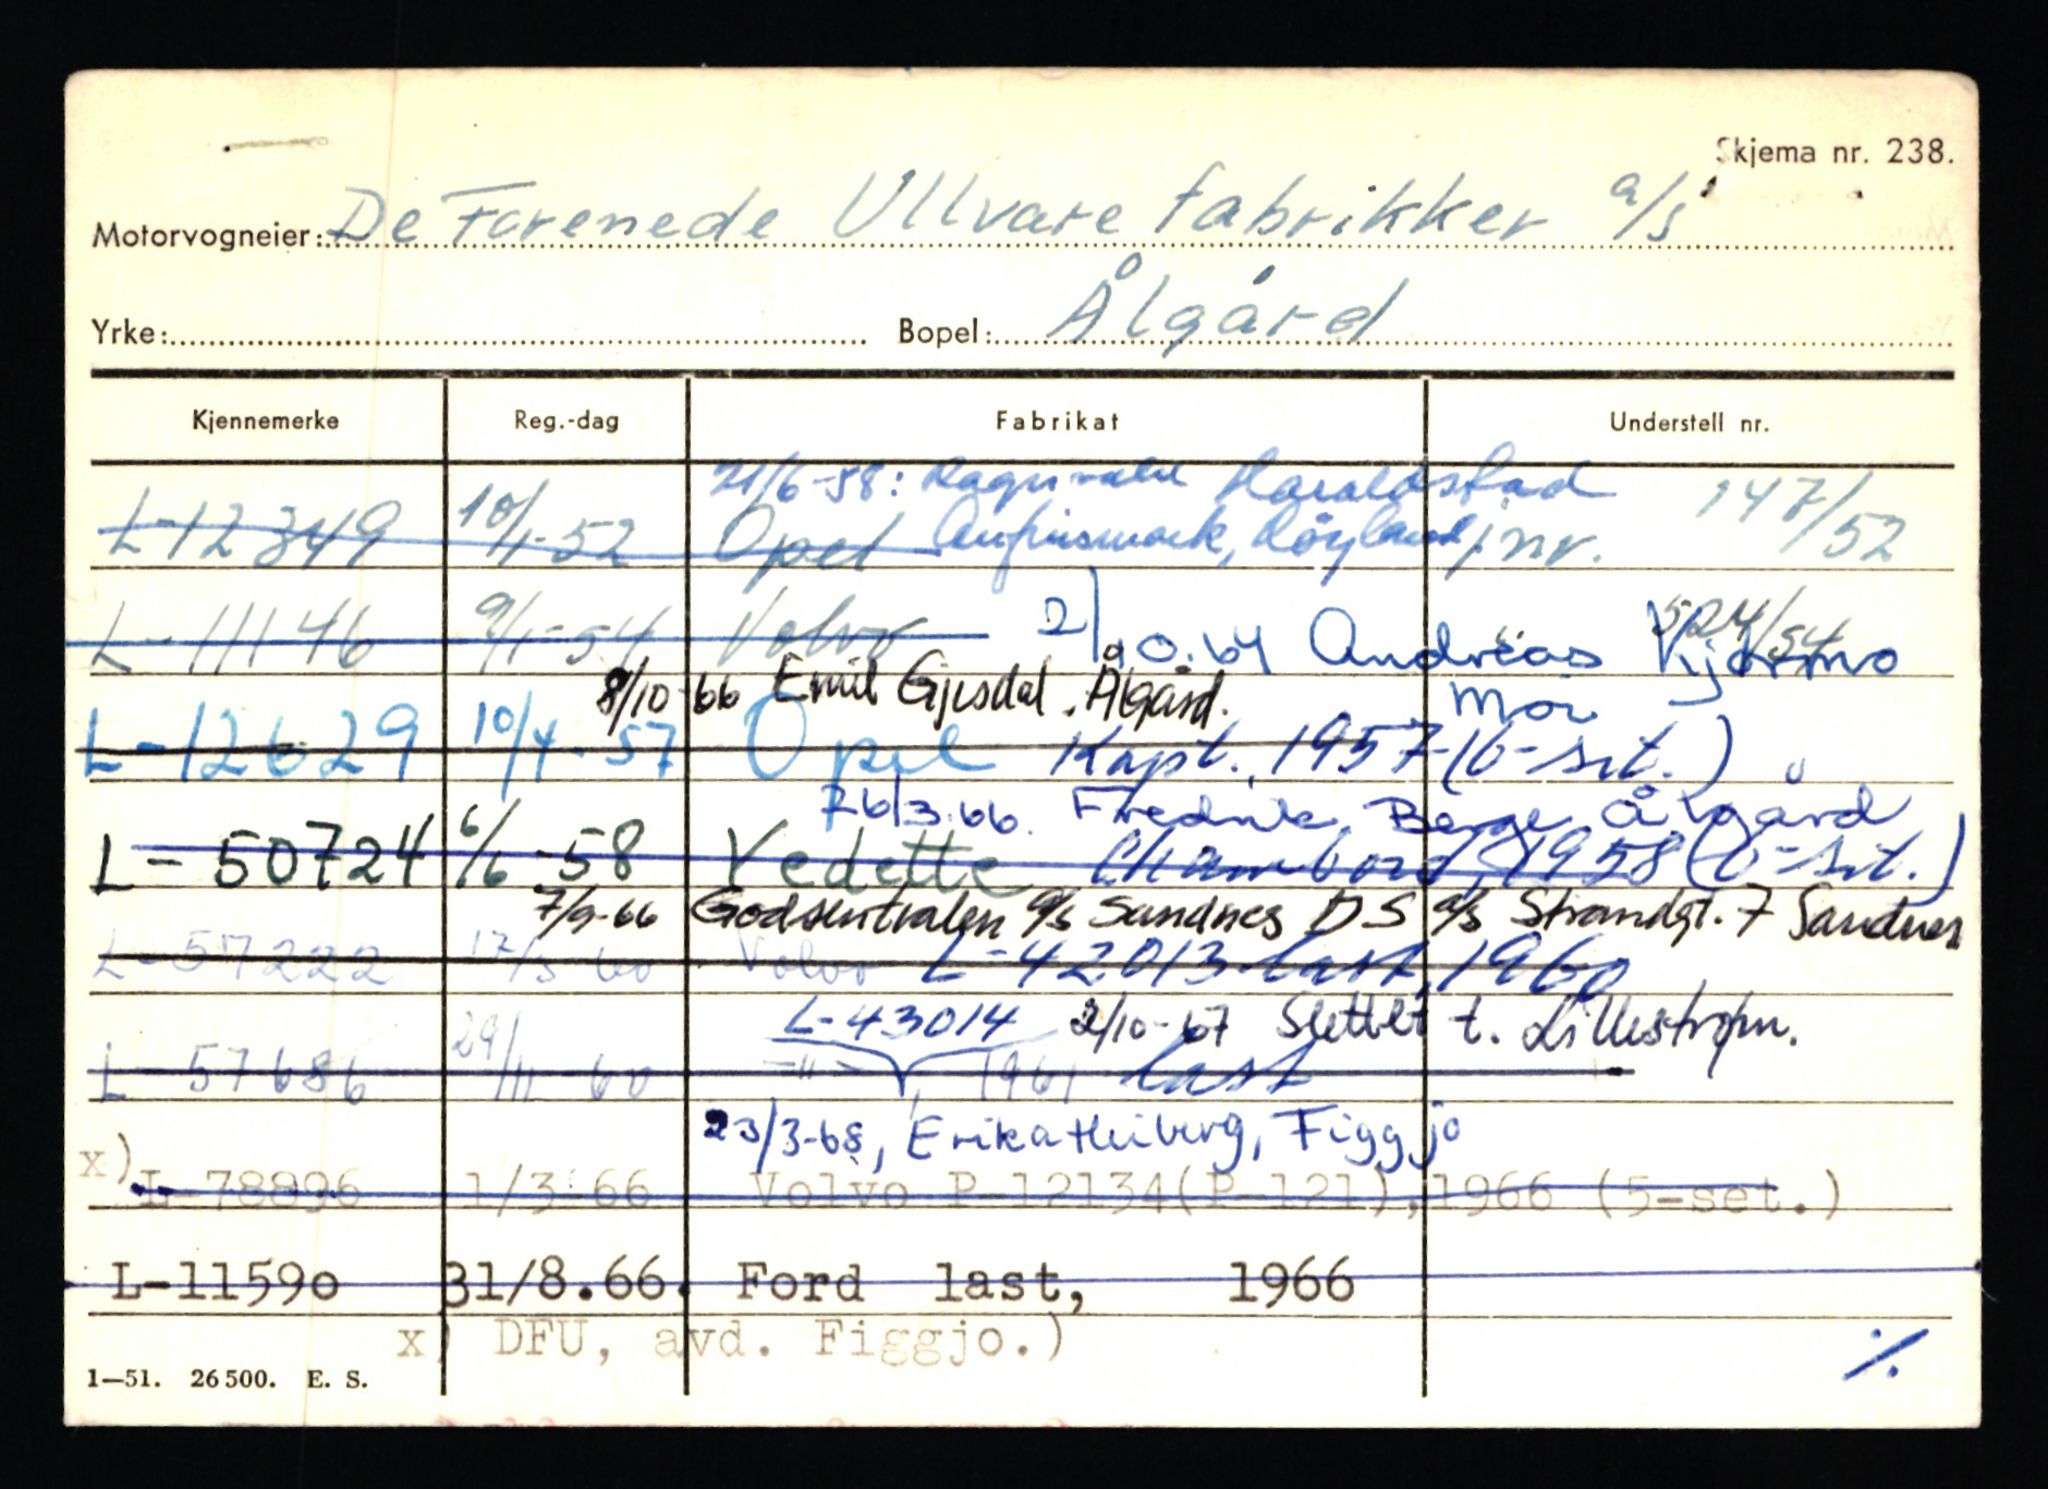 Skjema nr. 238.
Motorvogneier: De Forenede Ullvarefabrikker a/s
Yrke: Bopel: Ålgård
Kjennemerke Reg.-dag Fabrikat Understell nr.
21/6-58: Haraldstad
L-12349 10/1-52 Opel jnr. 147/52
L-11146 9/1-54 Volvo 2/ 0.64 Andreas 524/54
8/10-66 Emil Gjesdal. Ålgård. Moi
L-12629 10/4-57 Opel Kapt. 1957 (6-sit.)
26/3.66. Fredrik Berge Ålgård
L-50724 6/6-58 Vedette Chambord, 1958 (6-sit.)
7/9-66 Godssentralen a/s Sandnes DS a/s Strandgt. 7 Sandnes
L-57222 17/3 60 Volvo L-42013 last, 1960
L-43014 2/10-67 Slettet t. Lillestrøm.
L-57686 29/11 60 -"-, 1961 last
23/3-68, Erika Heiberg, Figgjo
x) L-78896 1/3-66 Volvo P-12134(P-121),1966 (5-set.)
L-11590 31/8.66. Ford last, 1966
x) DFU, avd. Figgjo.)
1—51. 26500. E. S. ·/.